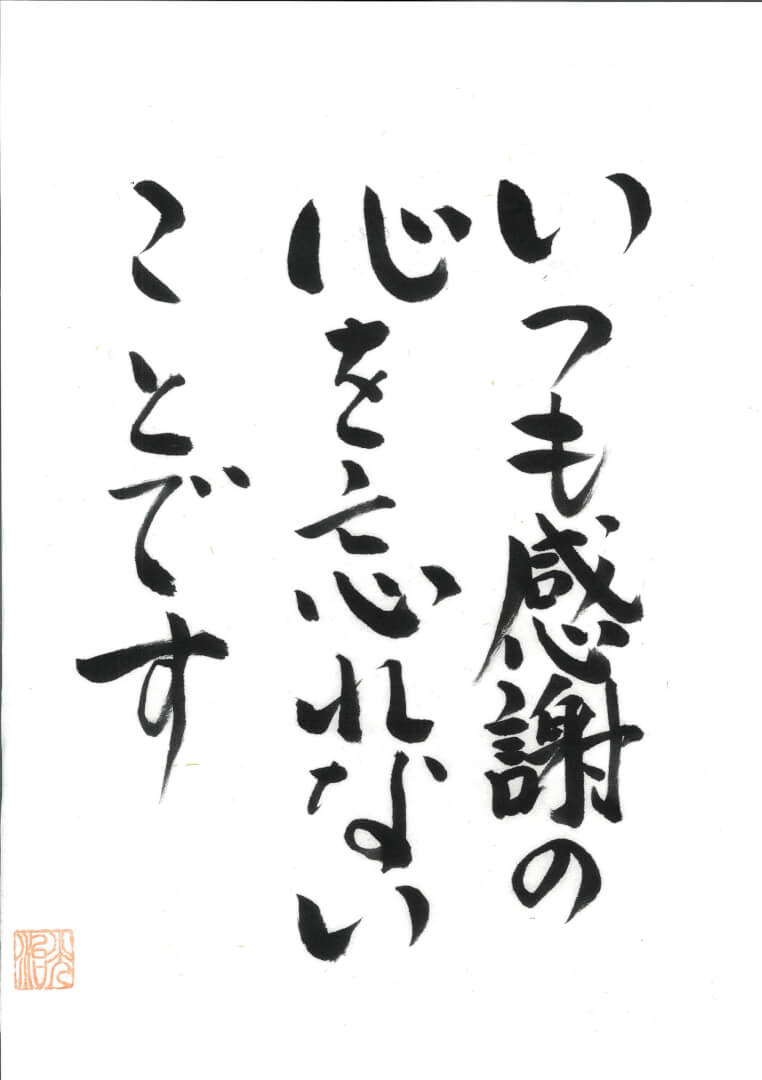 いつも感謝の
心を忘れない
ことです